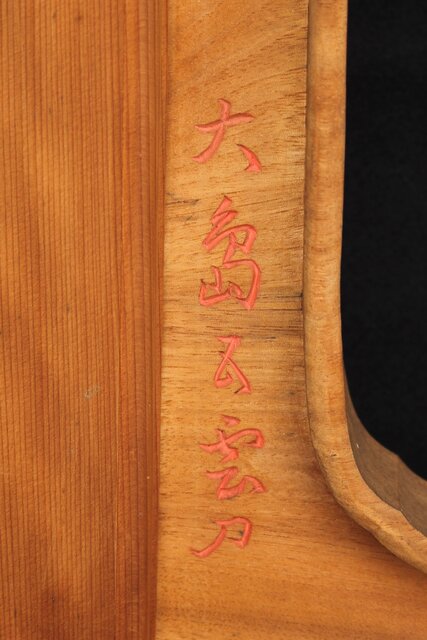 大島五雲刀